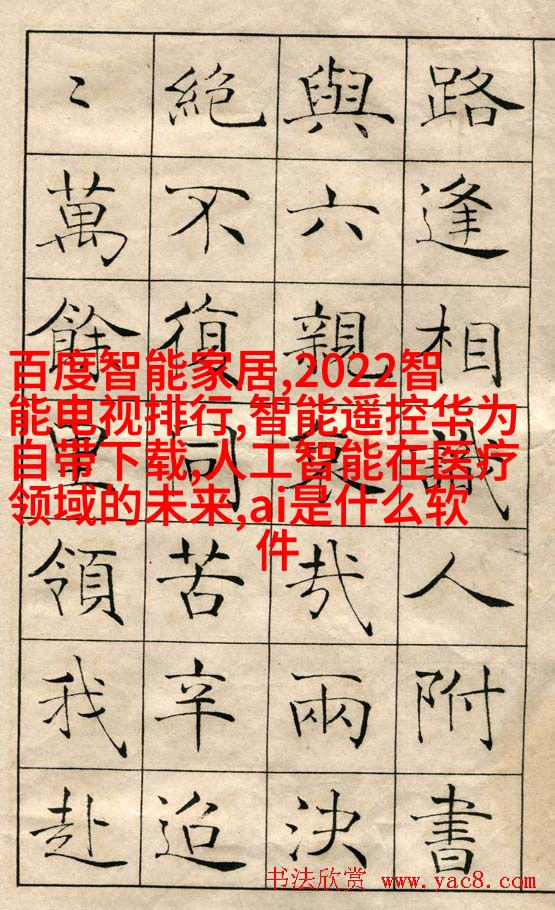 路逢相識人附書
與六親哀哉兩決
絕不復同苦辛迢
〻萬餘里領我赴
百度智能家居,2022智
能电视排行,智能遥控华为
自带下载,人工智能在医疗
领域的未来,ai是什么软
件
书法欣赏 www.yac8.com